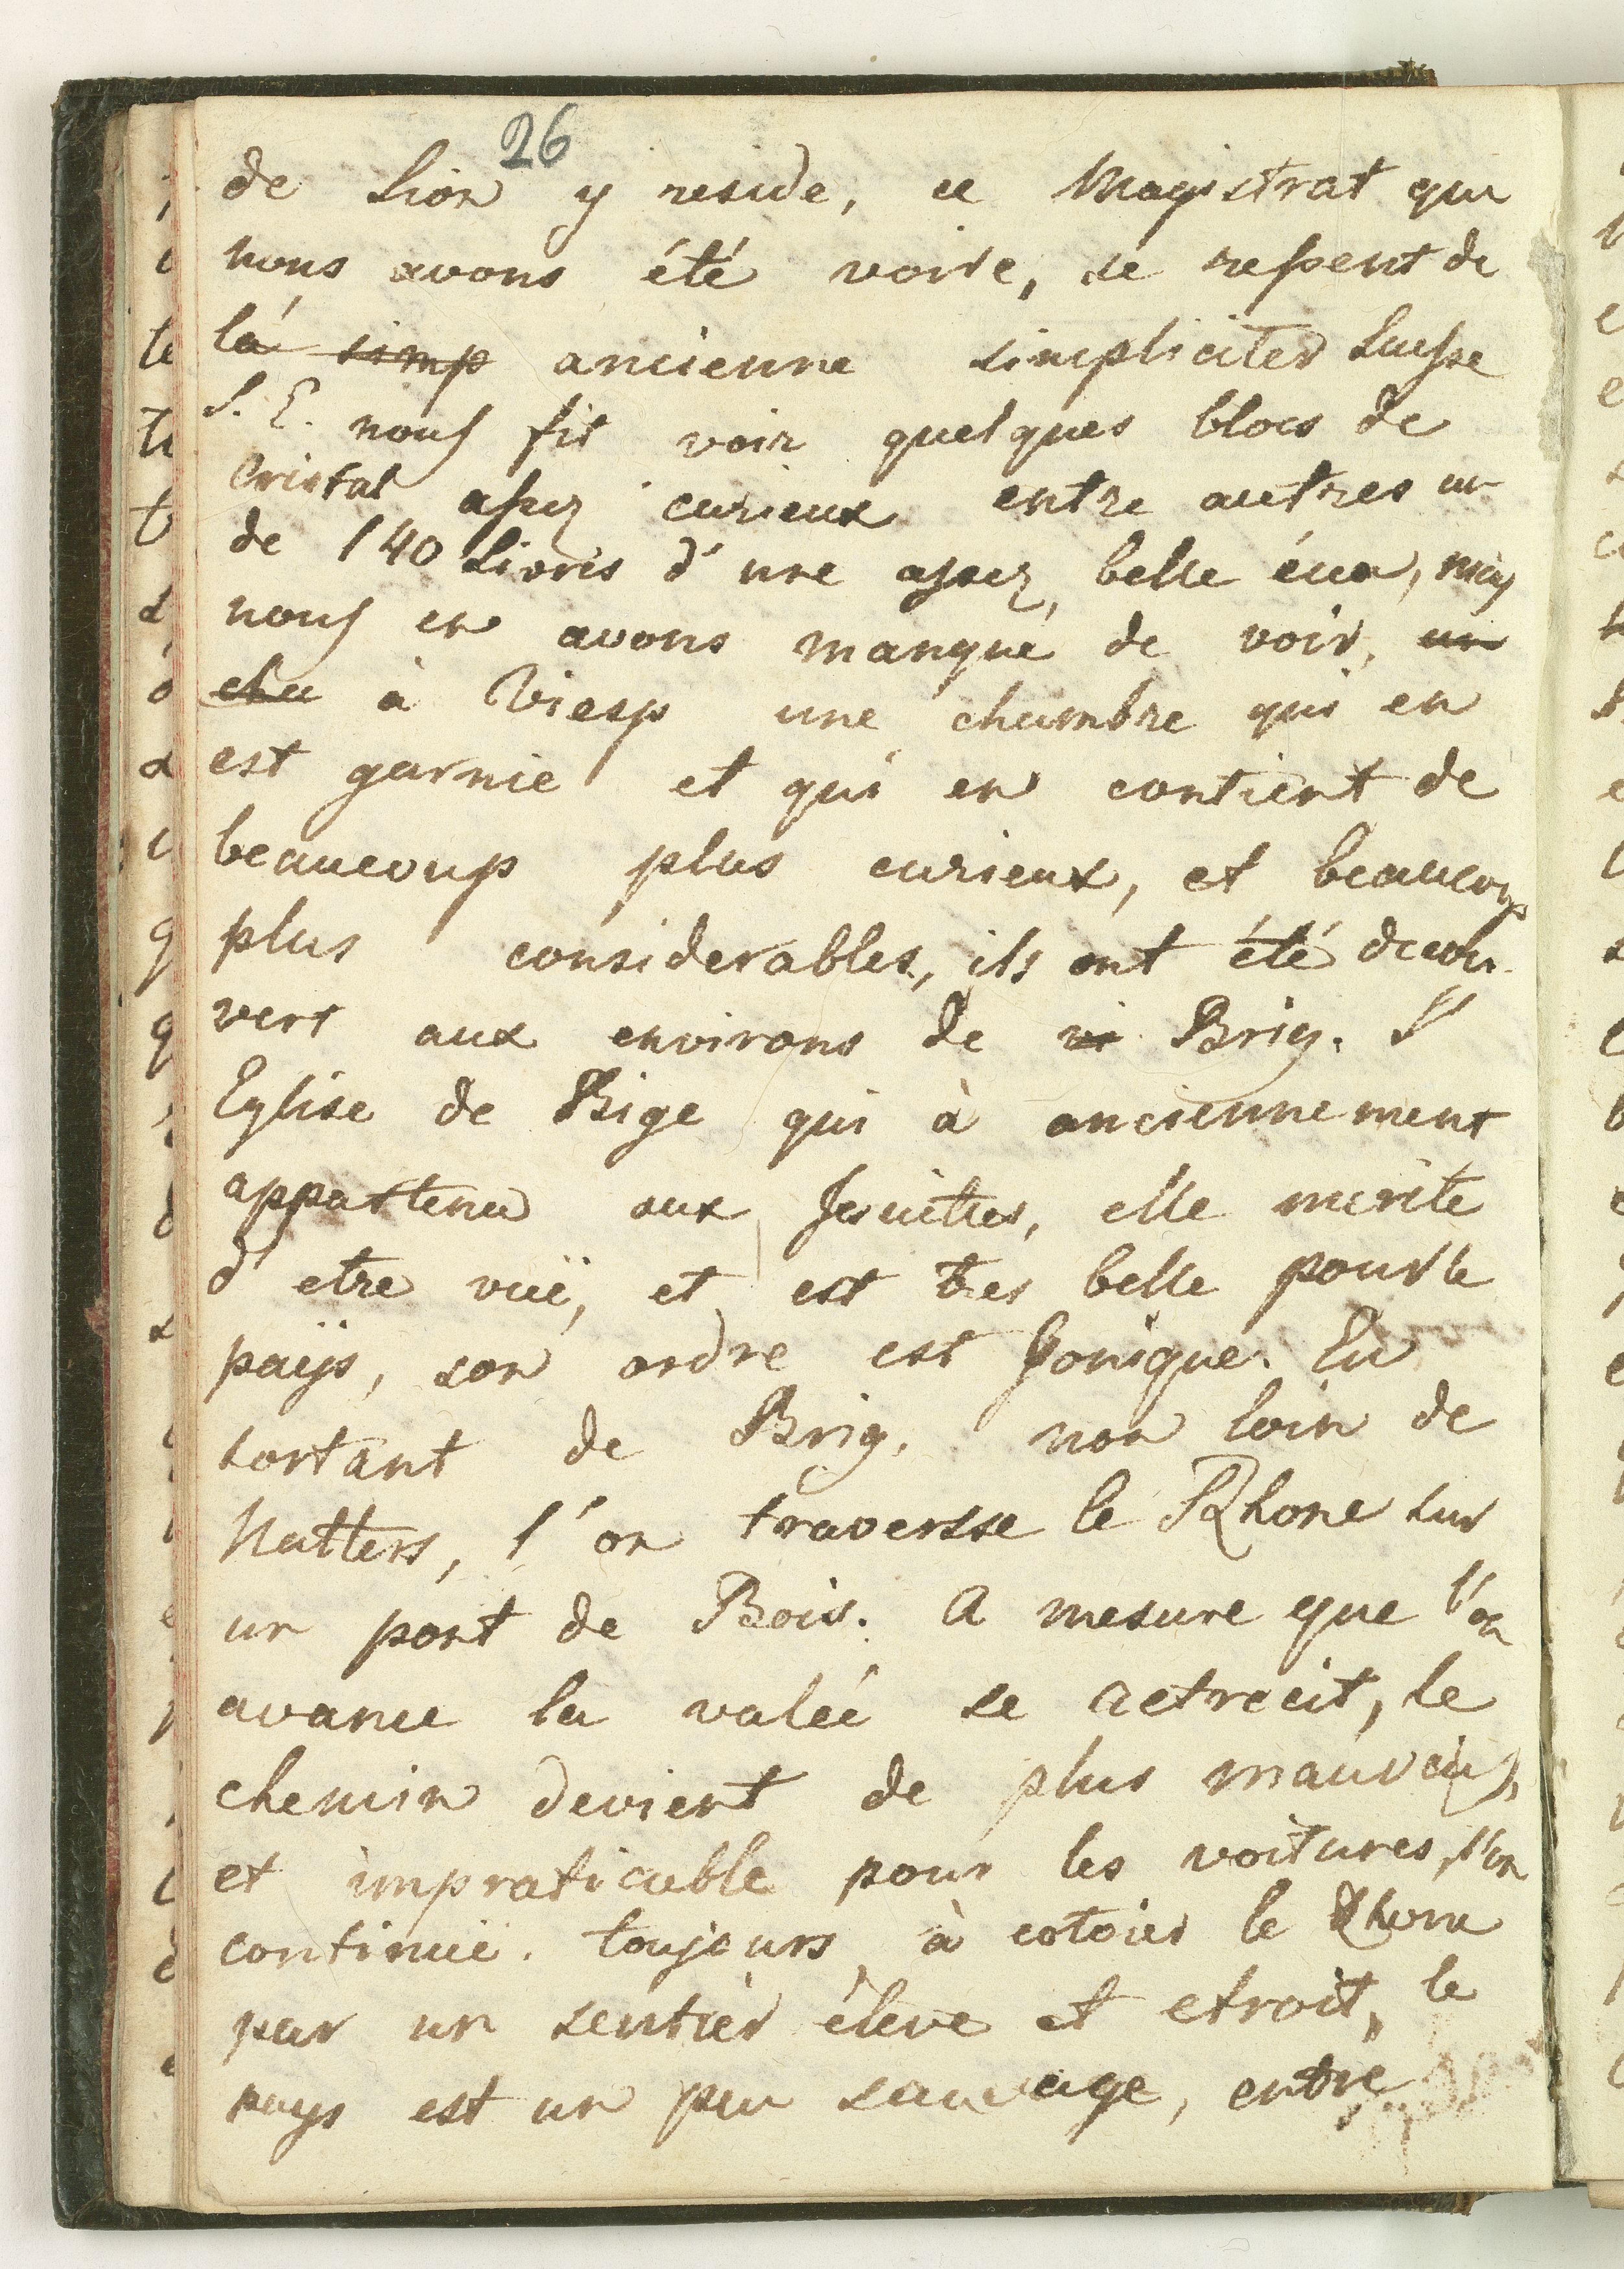 26
de Sion y reside, ce Magistrat que
nous avons été voire, se ressent de
la simp ancienne simpliciter Suisse
S. E. nous fit voir quelques blocs de
Cristal assez curieux entre autres un
de 140 Livres d'une assez belle eau, mais
nous en avons manqué de voir, un
cha à Viesp une chambre qui en
est garnie et qui en contient de
beaucoup plus curieux, et beaucoup
plus considerables, ils ont été decou-
vert aux environs de vi Brig. L'
Eglise de Brige qui à anciennement
appartenu aux Jesuittes, elle merite
d'etre vuë, et est tres belle pour le
païjs, son ordre est Jonique. En
sortant de Brig, non loin de
Natters, l'on traversse le Rhone sur
un pont de Bois. A mesure que l'on
avance la valeé se retrecit, le
chemin devient de plus mauvais,
et impraticable pour les voitures, l'on
continuë toujours à cotoier le Rhone
par un sentier éleve et etroit, le
pays est un peu sauvage, entre